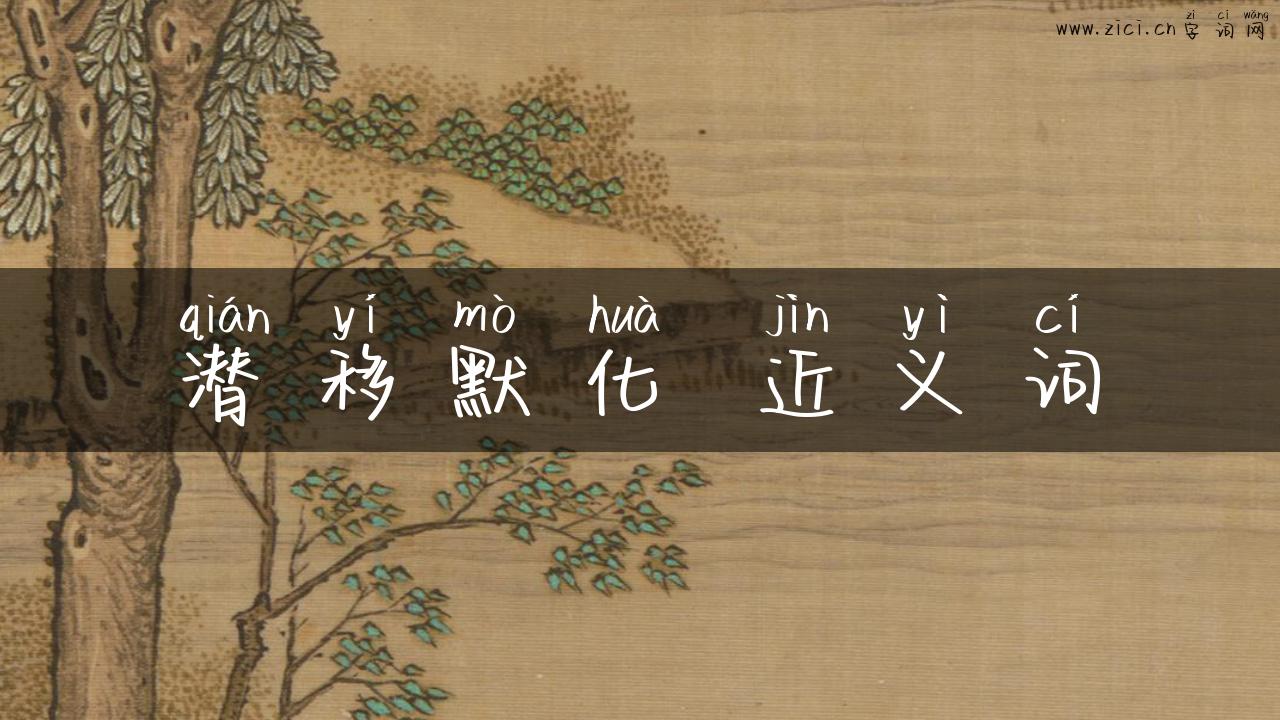 zì cí wǎng
www.zici.cn字词网
qián yí mò huà jìn yì cí
潜移默化 近义词